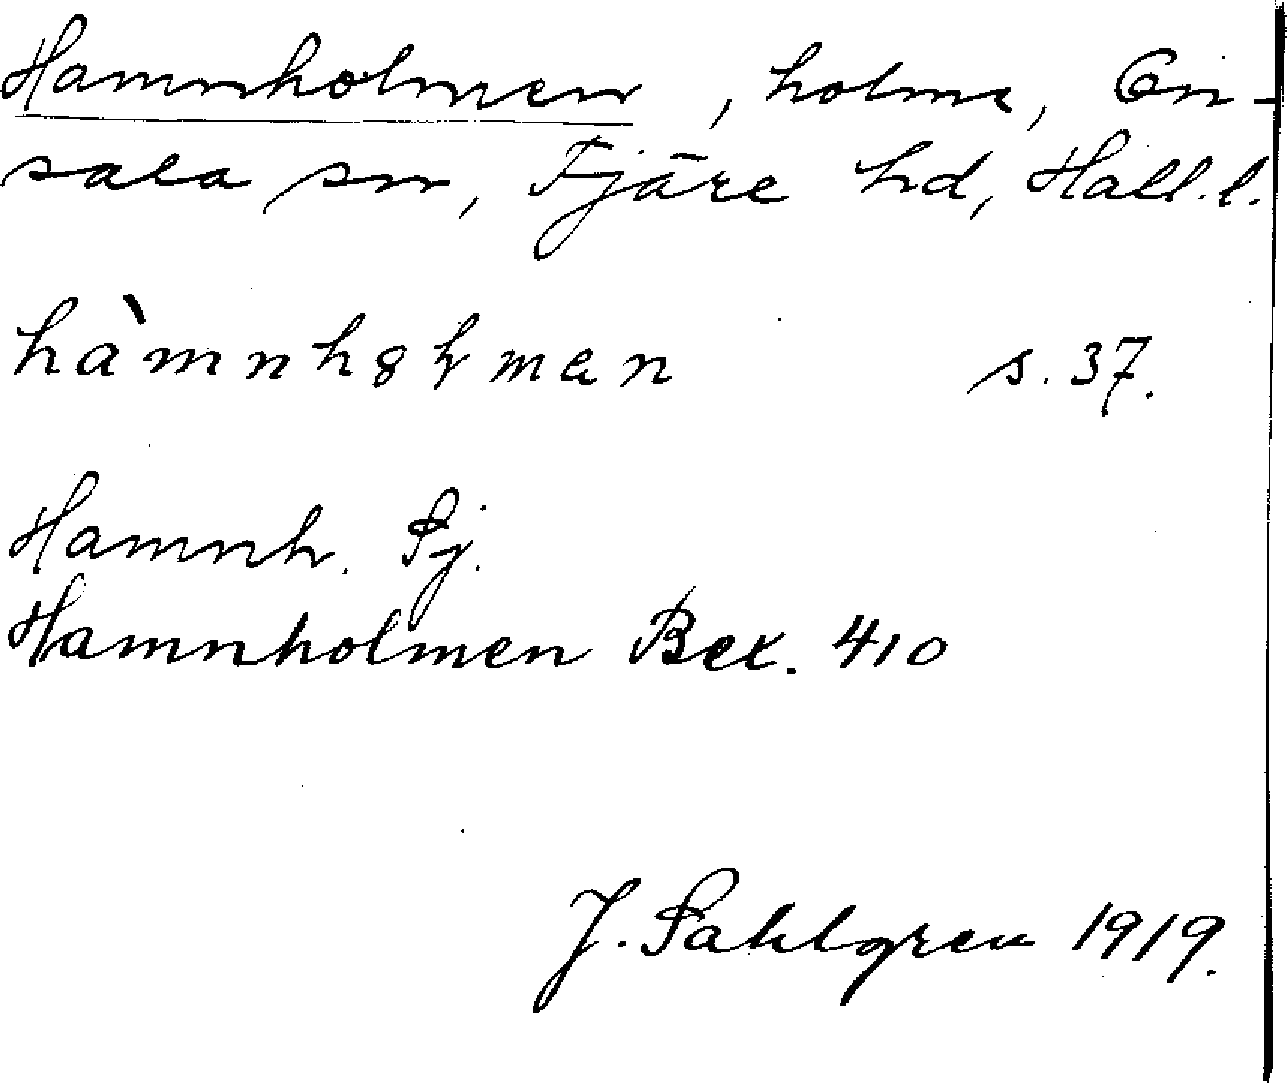 Hamnholmen, holme, On-
sala sn, Fjäre hd, Hall. l.
hàmnhɞɫmən s. 37.
Hamnh. Sj.
Hamnholmen Bex. 410
J. Sahlgren 1919.